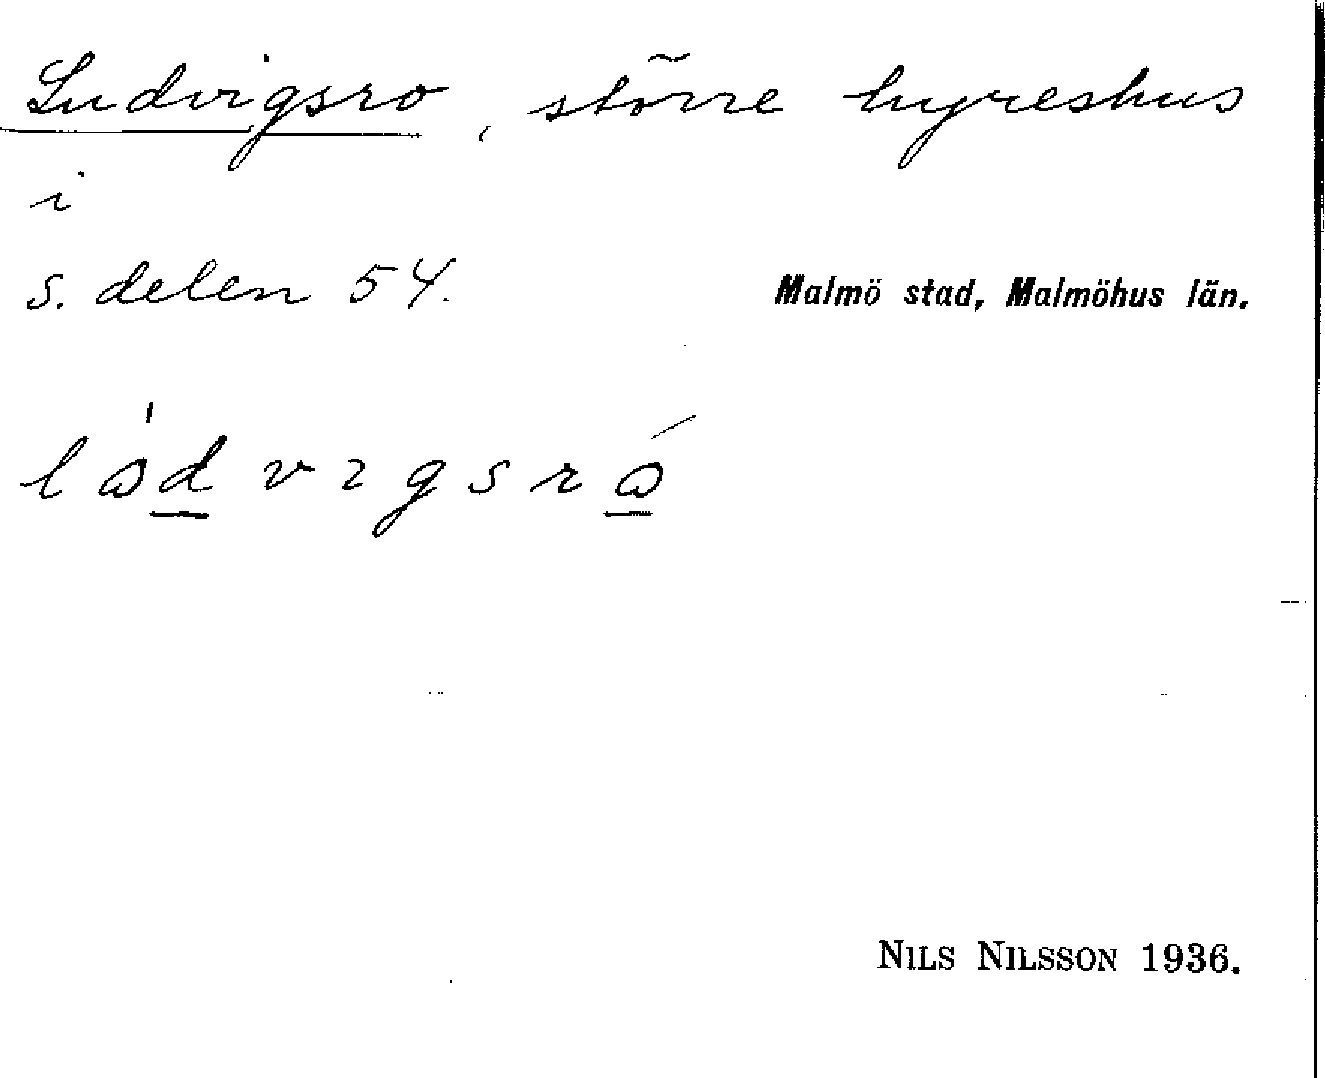 Ludvigsro, större hyreshus
i
s. delen 54.
Malmö stad, Malmöhus län.
NILS NILSSON 1936.